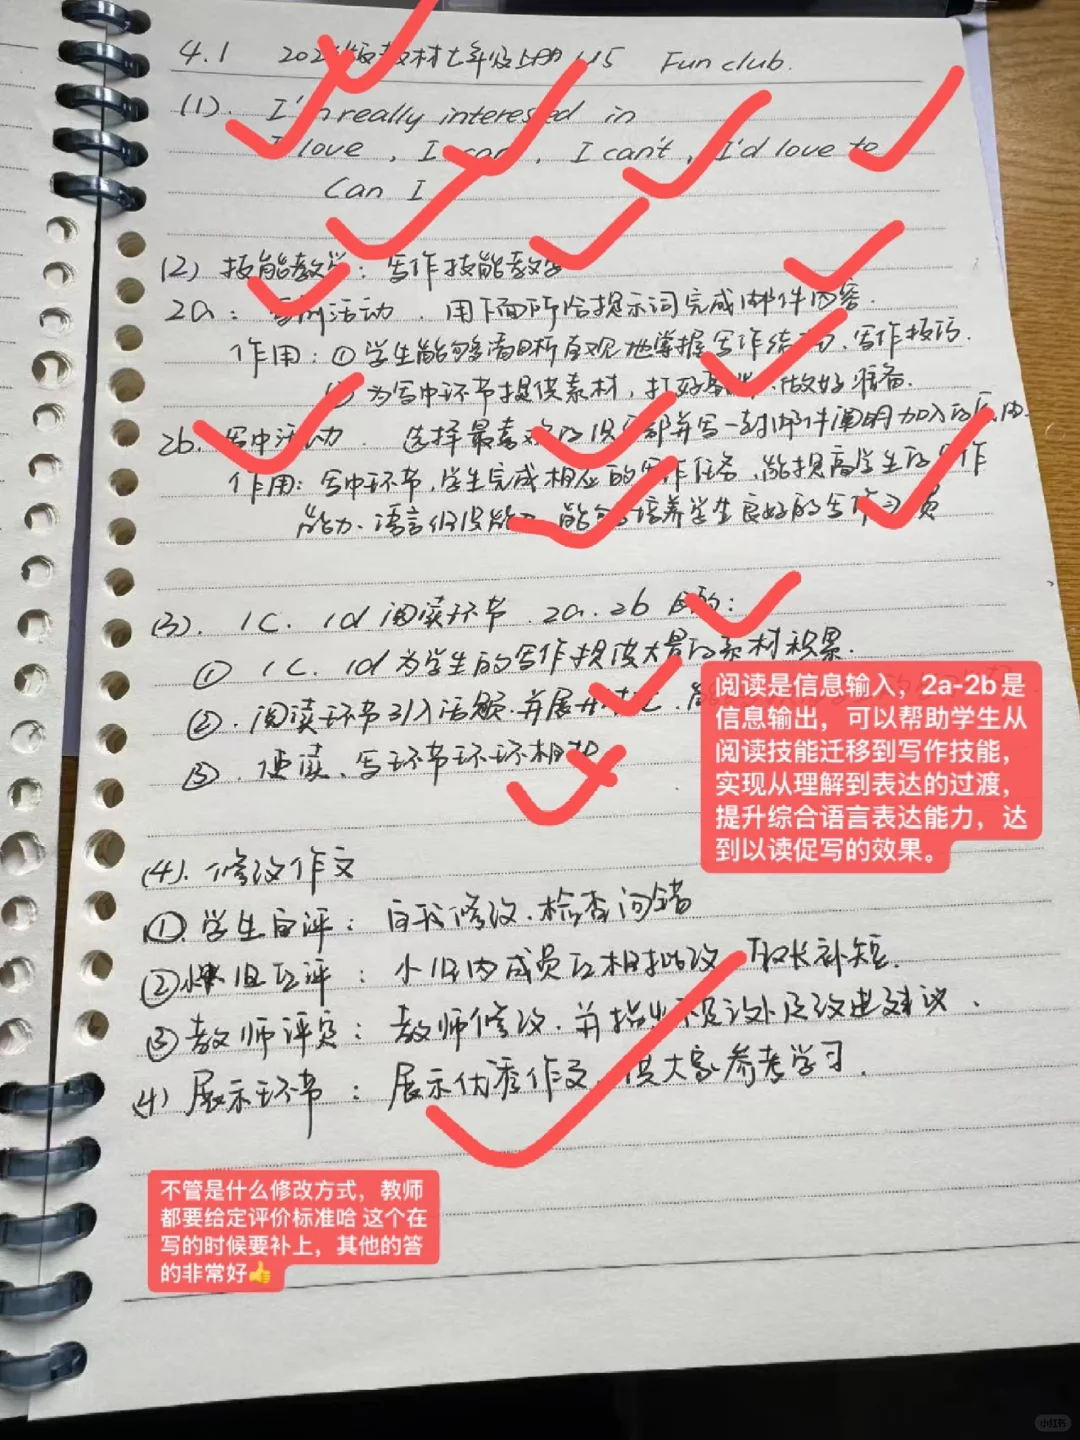 4.1 202 版教材七年级上册 U5 Fun club.
(1). I'm really interested in
I love , I can , I can't , I'd love to
Can I
(2) 技能教学: 写作技能教学
2a: 写前活动 . 用下面所给提示词完成邮件内容.
作用: ① 学生能够清晰直观地掌握写作结构、写作技巧.
② 为写中环节提供素材, 打好基础, 做好准备.
2b. 写中活动 . 选择最喜欢的俱乐部并写一封邮件阐明加入的原由.
作用: 写中环节, 学生完成相应的写作任务, 能提高学生的写作
能力、语言 能力, 能够培养学生良好的写作习惯
(3). 1C. 1d 阅读环节 . 2a. 2b 目的:
① 1C. 1d 为学生的写作提供大量的素材积累.
② . 阅读环节引入话题. 并展开讨论, 能
③ . 使读、写环节环环相扣
阅读是信息输入，2a-2b是
信息输出，可以帮助学生从
阅读技能迁移到写作技能，
实现从理解到表达的过渡，
提升综合语言表达能力，达
到以读促写的效果。
(4). 修改作文
① 学生自评: 自我修改、检查问错
② 组互评: 小组内成员互相批改 取长补短.
③ 教师评定: 教师修改. 并指出不足之处及改进建议.
(4) 展示环节: 展示优秀作文, 供大家参考学习.
不管是什么修改方式，教师
都要给定评价标准哈 这个在
写的时候要补上，其他的答
的非常好👍
小红书